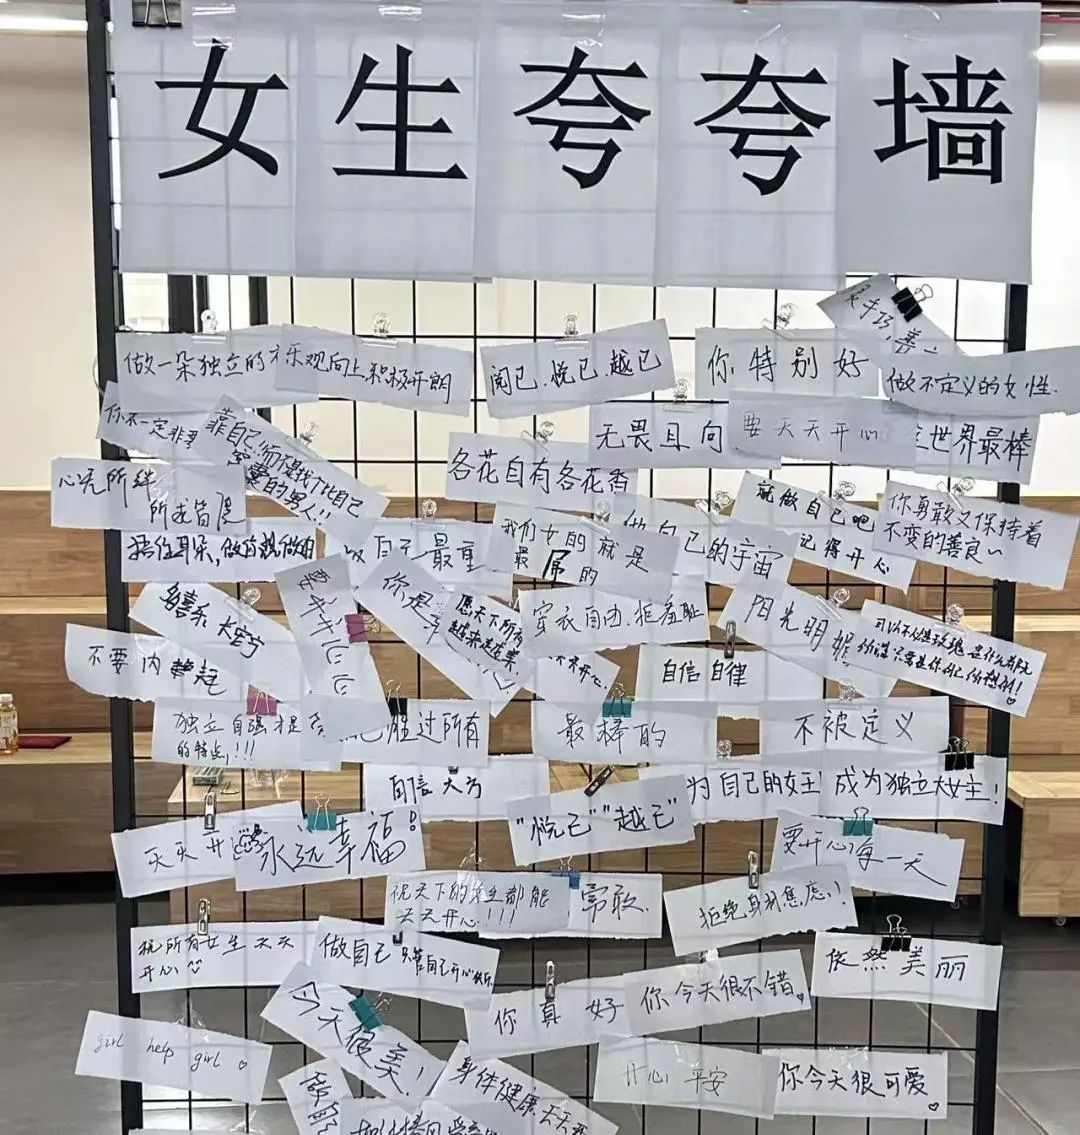 女生夸夸墙
做一朵独立的
乐观向上积极开朗
阅己、悦己、越己
你特别好
做不定义的女性.
你不一定非要
靠自己!而不是找个比自己
的男人!!
各花自有各花香
无畏且向
要天天开心
世界最棒
心无所绊
所求皆
捂住耳朵,做
最重
我们女的就是
最屌的
自己的宇宙
就做自己吧
记得开心
你勇敢又保持着
不变的善良~
不要内
长安宁
你是
愿天下所有
越来越美
天天开心
穿衣自由、拒羞耻
自信自律
阳光明
独立自强
的特点!!!
胜过所有
最棒的
不被定义
自信大方
为自己的女王!
成为独立大女主!
天天开
永远幸福!
"悦己""越己"
要开心每一天
祝天下的女生都能
天天开心!!!
勇敢.
拒绝身材焦虑!
祝所有女生天天
开心
做自己
你真好
你今天很不错
依然美丽
今天很美!
girl help girl
身体健康,天天
开心 平安
你今天很可爱